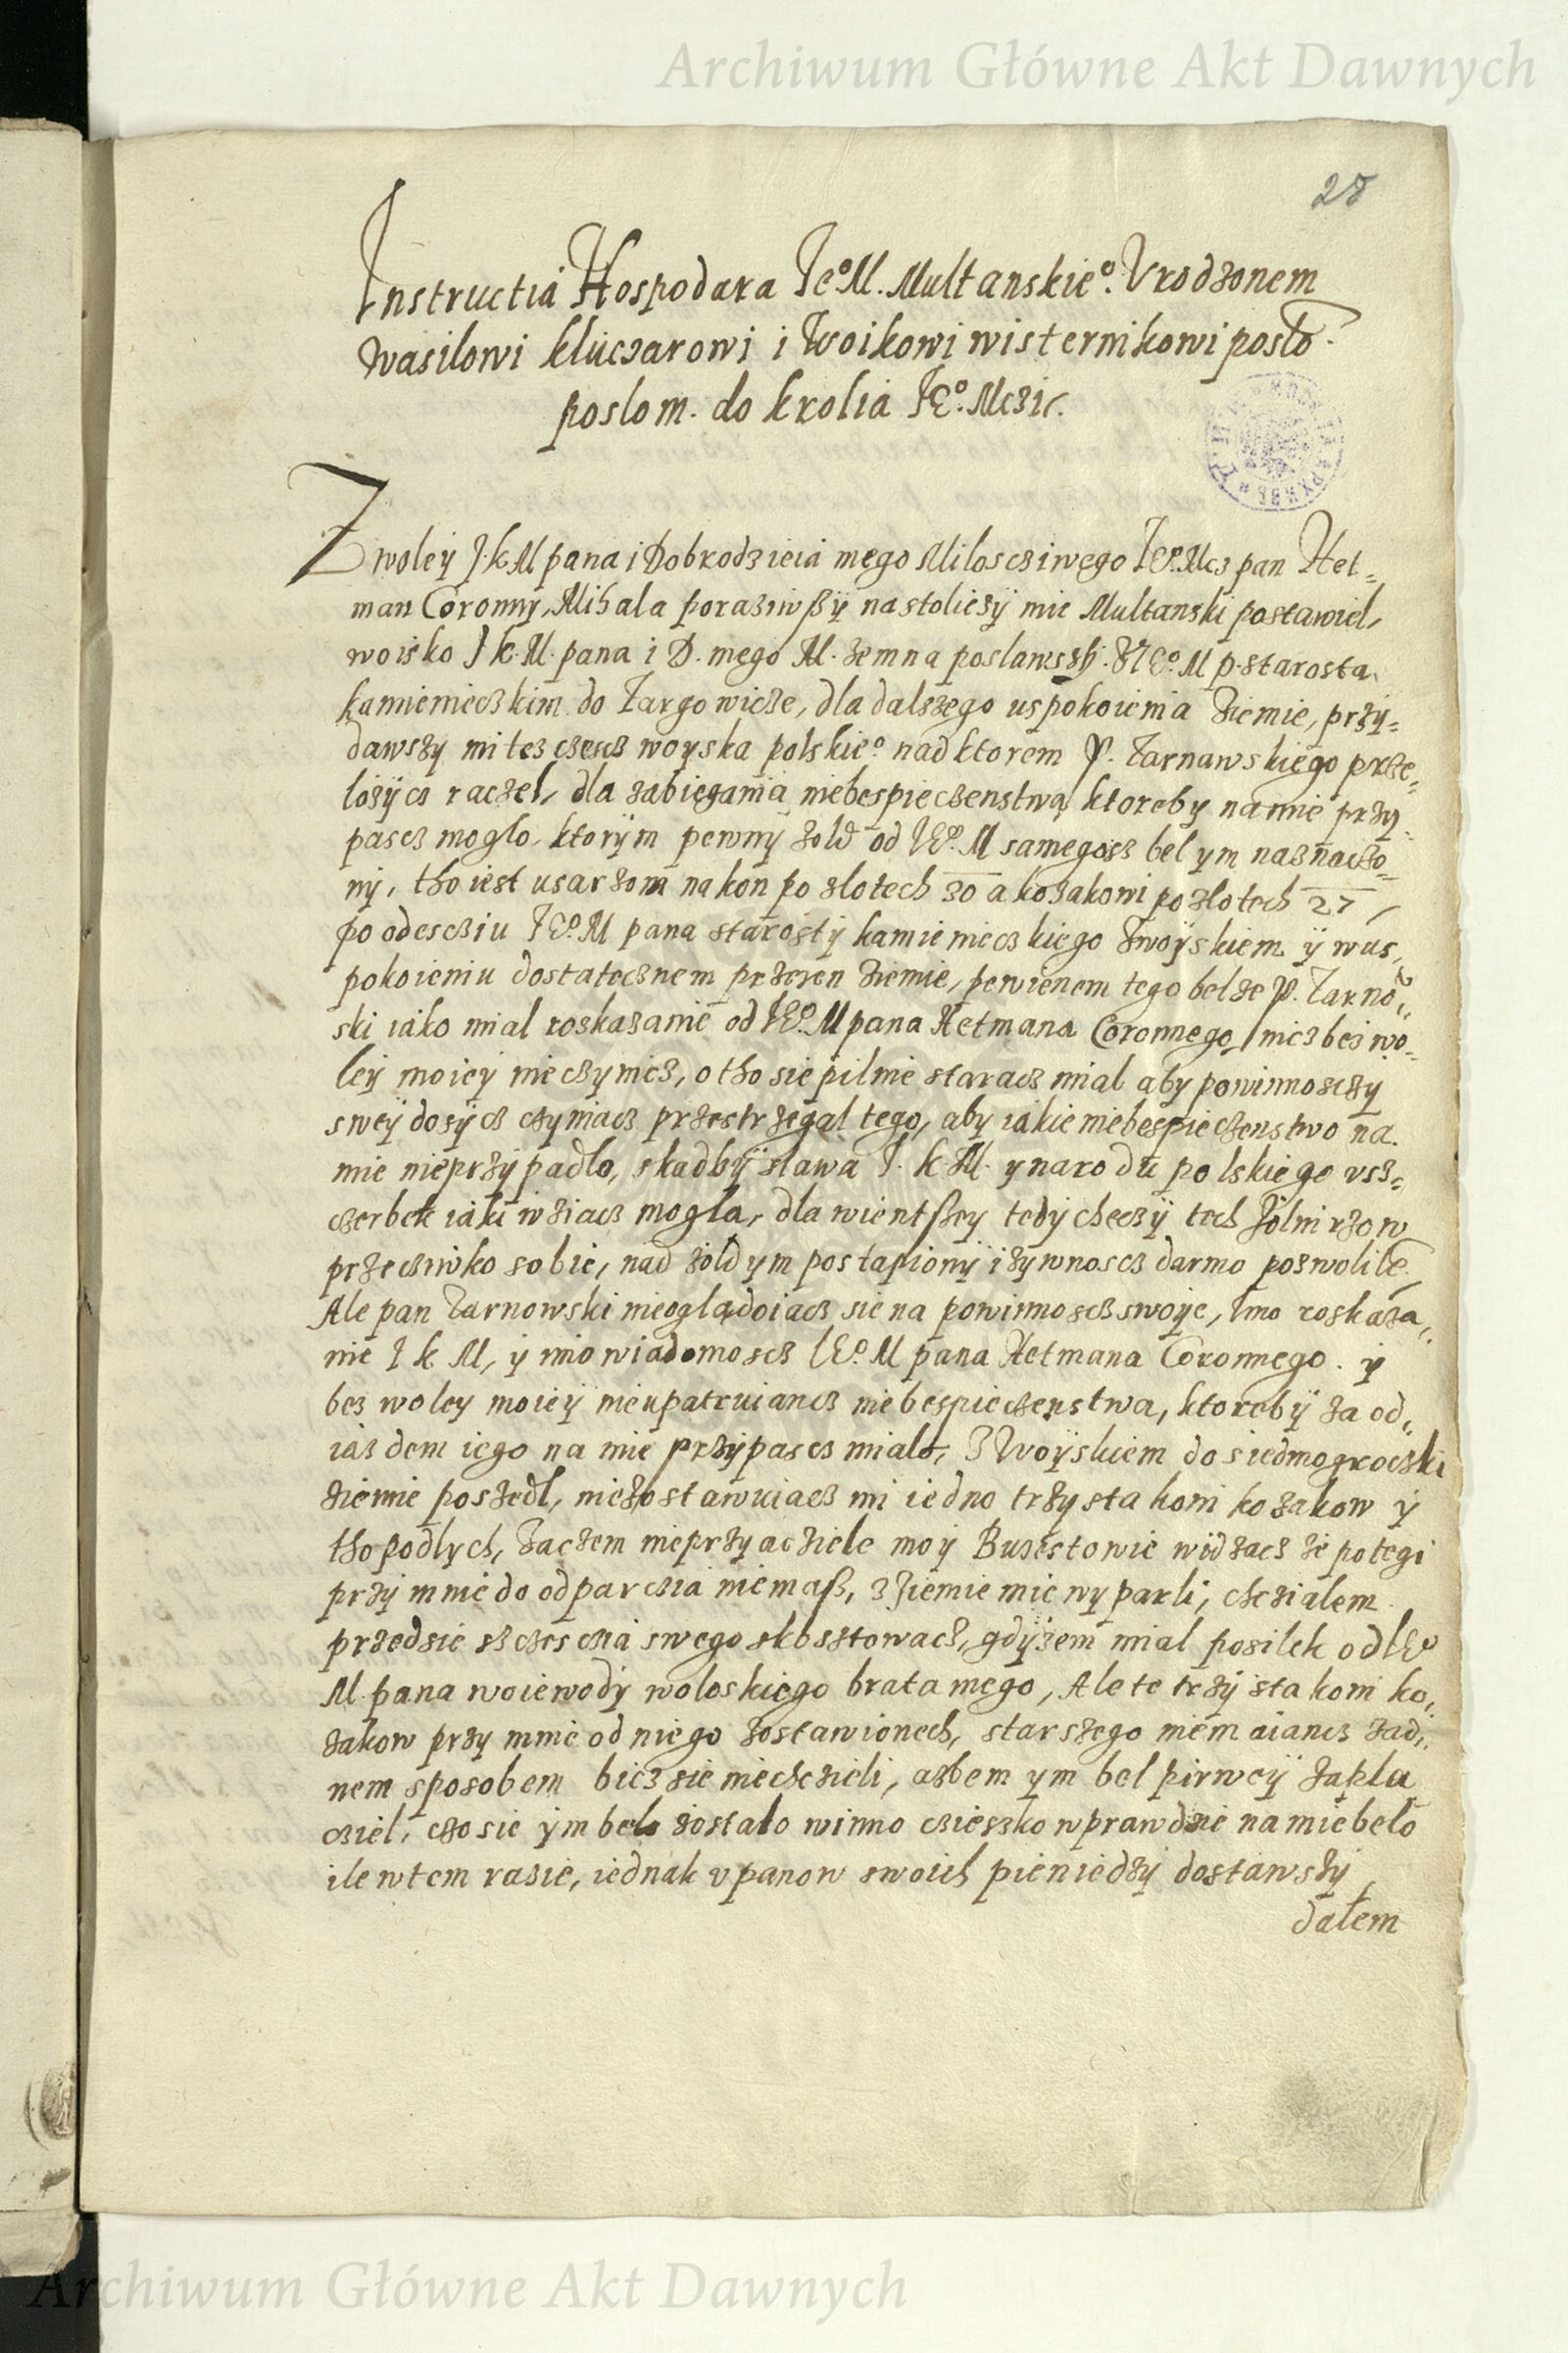 Archiwum Główne Akt Dawnych
28
Instructia Hospodara Je°M. Multanskie°. Vrodzonem
Wasilowi kluczarowi i Woikowi wisternikowi
poslom. do krolia JE°. Mczi.
Z woleÿ J. k M pana i Dobrodzieia mego Milosciwego JE°. Mcz pan Het=
man Coronny, Mihala poraziwßÿ na stolieÿ mie Multanski postawiel,
woisko J k. M. pana i D. mego M. zemna poslawszÿ. E°. M p. starosta
kamienieczkim do Targowicze, dla dalszego uspokoienia ziemie, przÿ=
dawszÿ mi tez czescz woyska polskie° nad ktorem P. Tarnawskiego prze=
lozÿcz raczel, dla zabiegania niebespieczenstwa ktoreby na mie przÿ
pascz moglo, ktorÿm pewnÿ zold od JE°. M samegosz bel ym naznaczo=
nÿ, tho iest usarzom na kon po zlotech 30 a kozakowi po zlotech 27
po odesciu JE°. M pana starostÿ kamienieczkiego zwoÿskiem ÿ w us,
pokoieniu dostatecznem przezen ziemie, pewienem tego bel ze P. Tarno,,
ski iako mial roskazanie od JE°. M pana Hetmana Coronnego, nicz bez wo=
leÿ moieÿ nie czynicz, o tho sie pilnie staracz mial aby powinnosczÿ
sweÿ dosÿcz czyniacz przestrzegal tego, aby iakie niebespieczenstwo na
mie nieprzÿpadlo, skadbÿ slawa J. k M. y narodu polskiego vsz=
czerbek iaki wziacz mogla, dla wientßey tedÿ checzÿ tech zolnirzow
przeciwko sobie, nad zold ym postapionÿ i zÿwnoscz darmo pozwolile
Ale pan Tarnowski nieogladoiacz sie na powinnoscz swoÿe, imo roskaza,,
nie J k M, ÿ imo wiadomoscz JE°. M pana Hetmana Coronnego. ÿ
bez woley moieÿ nieupatruiancz niebespieczenstwa, ktorebÿ za od,
iazdem iego na mie przÿpascz mialo, z woÿskiem do siedmogroczki
ziemie poszedl, niezostawuiacz mi iedno trzÿsta koni kozakow ÿ
tho podlych, zaczem nieprzÿaciele moÿ Buzestowie widzacz ze potegi
przÿ mnie do odparcia niemaß, z ziemie mie wÿparli, chcialem
przedsie sczescia swego skosztowacz, gdÿzem mial posilek od JE°
M. pana woiewodÿ woloskiego brata mego, Ale te trzÿsta koni ko,
zakow przy mnie od niego zostawionech, starszego niemaiancz zad,,
nem sposobem bicz sie niechcieli, azbem ym bel pirweÿ zapla
ciel, czo sie ÿm belo zostalo winno cieszko wprawdzie na mie belo
ile w tem razie, iednak v panow swoich pieniedzÿ dostawszÿ
dalem
Archiwum Główne Akt Dawnych